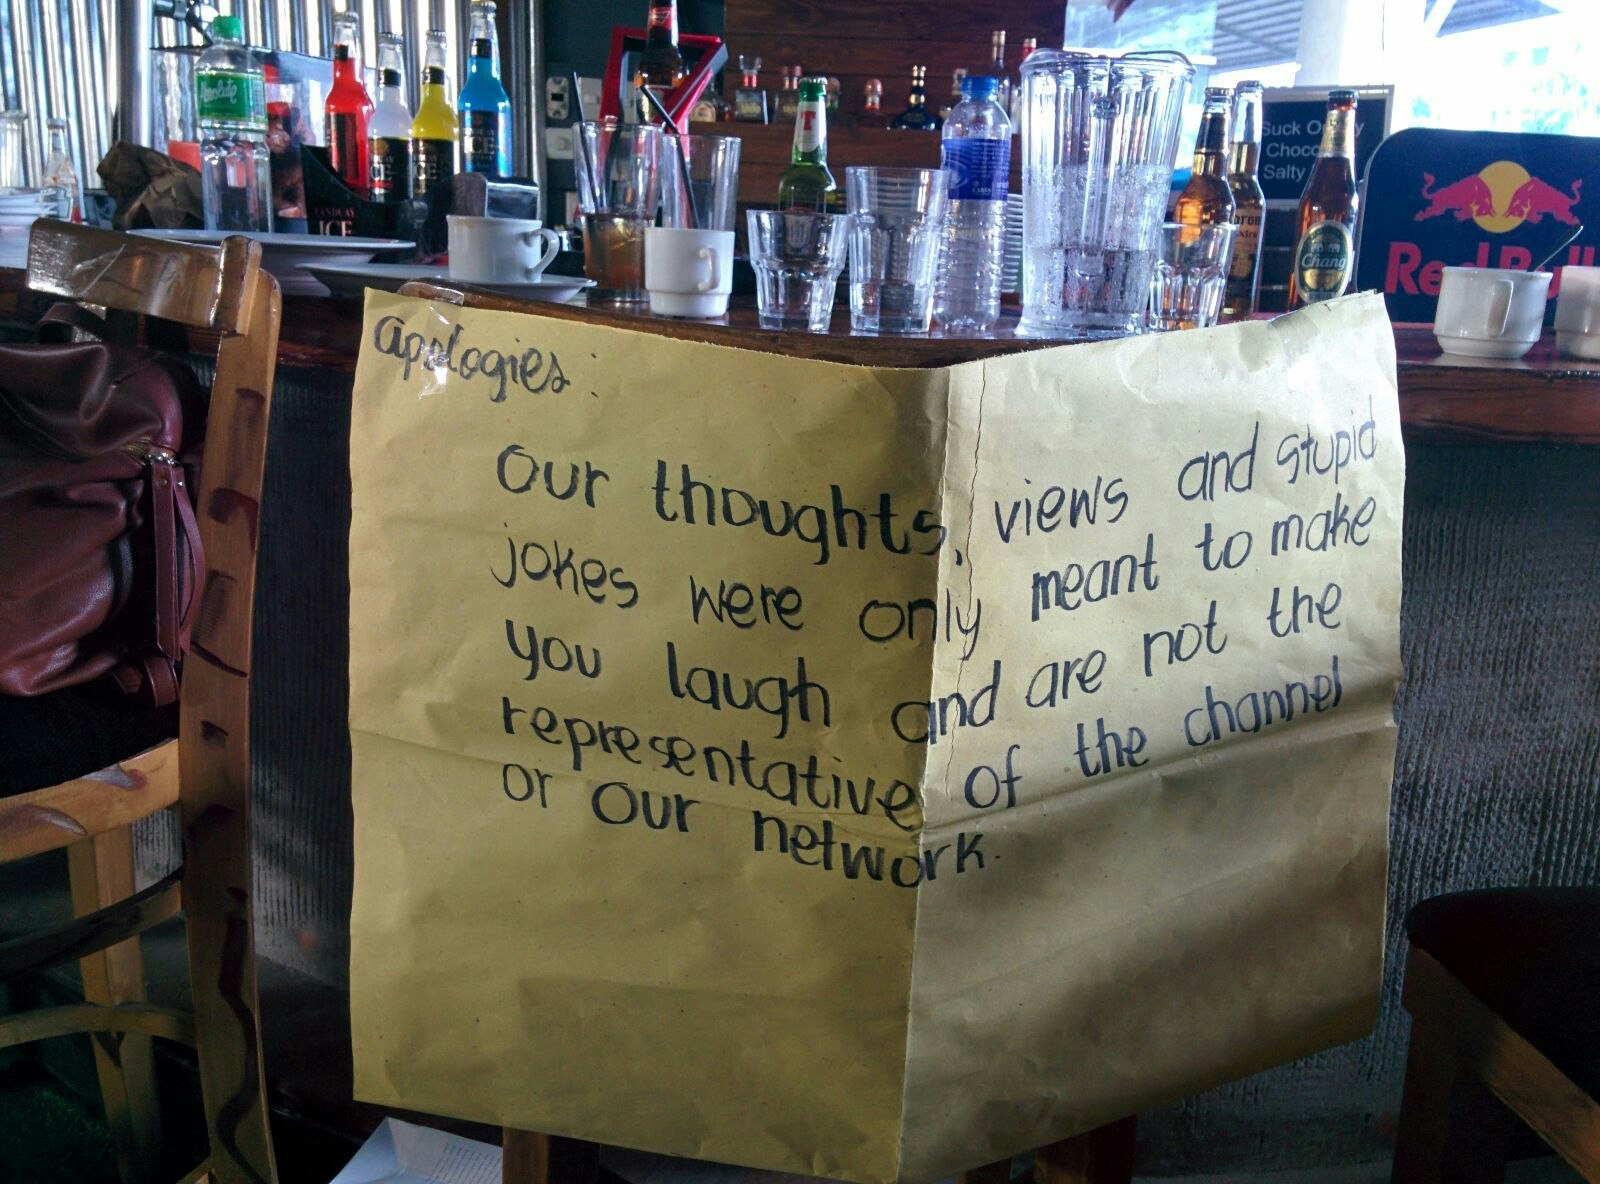 Apologies:
Our thoughts, views and stupid
jokes were only meant to make
you laugh and are not the
representative of the channel
or our network.
Absolute
ICE
ICE
TANDUAY
ICE
T
Chang
Suck
Salty
Red Bull